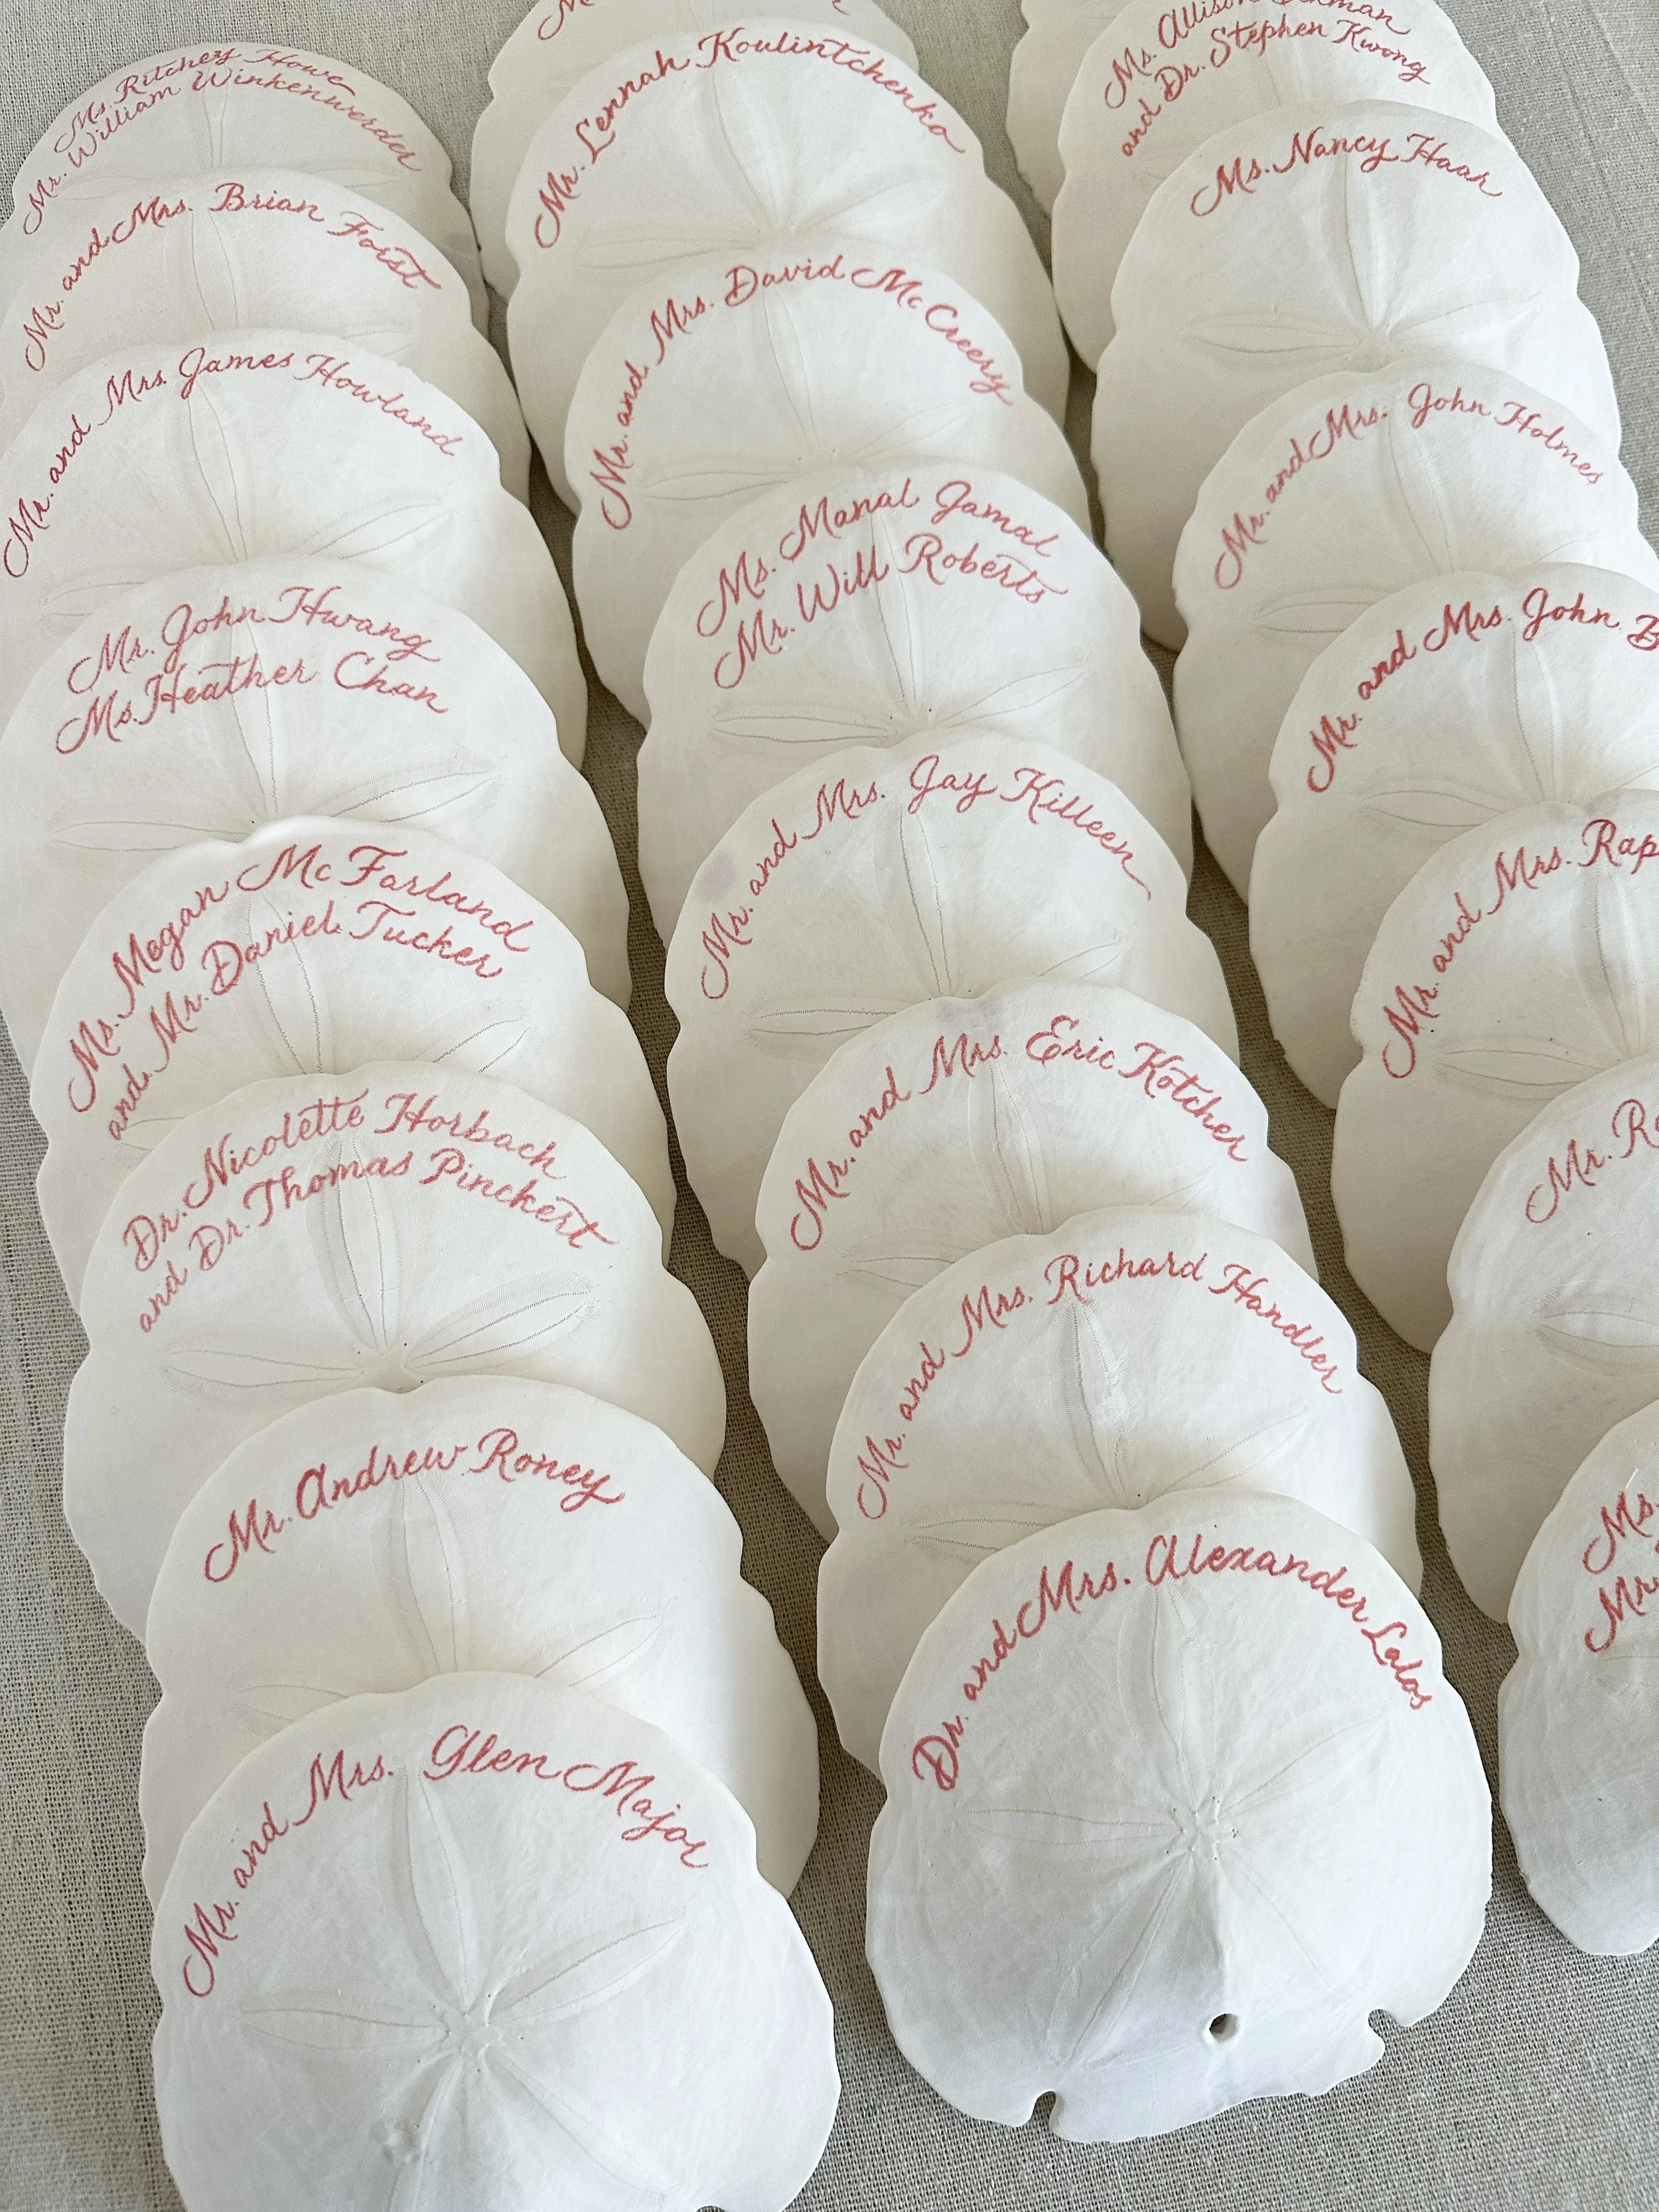 Ms. Ritchey Howe
Mr. William Winkenwerder
Mr. and Mrs. Brian Forst
Mr. and Mrs. James Howland
Mr. John Hwang
Ms. Heather Chan
Ms. Megan McFarland
and Mr. Daniel Tucker
Dr. Nicolette Horbach
and Dr. Thomas Pinckert
Mr. Andrew Roney
Mr. and Mrs. Glen Major
Mr. Lennah Koulintchenko
Mr. and Mrs. David McCreery
Ms. Manal Jamal
Mr. Will Roberts
Mr. and Mrs. Jay Killeen
Mr. and Mrs. Eric Kotcher
Mr. and Mrs. Richard Handler
Dr. and Mrs. Alexander Lalos
Ms. Allison
and Dr. Stephen Kwong
Ms. Nancy Haar
Mr. and Mrs. John Holmes
Mr. and Mrs. John
Mr. and Mrs.
Mr.
Ms.
Mr.